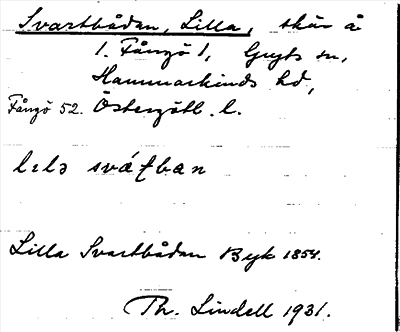 Svartbådan, Lilla, skär å
1. Fångö 1, Gryts sn,
Hammarkinds hd,
Fångö 52. Östergötl. l.
lɩlə svátban
Lilla Svartbådan Byk 1854.
Th. Lindell 1931.